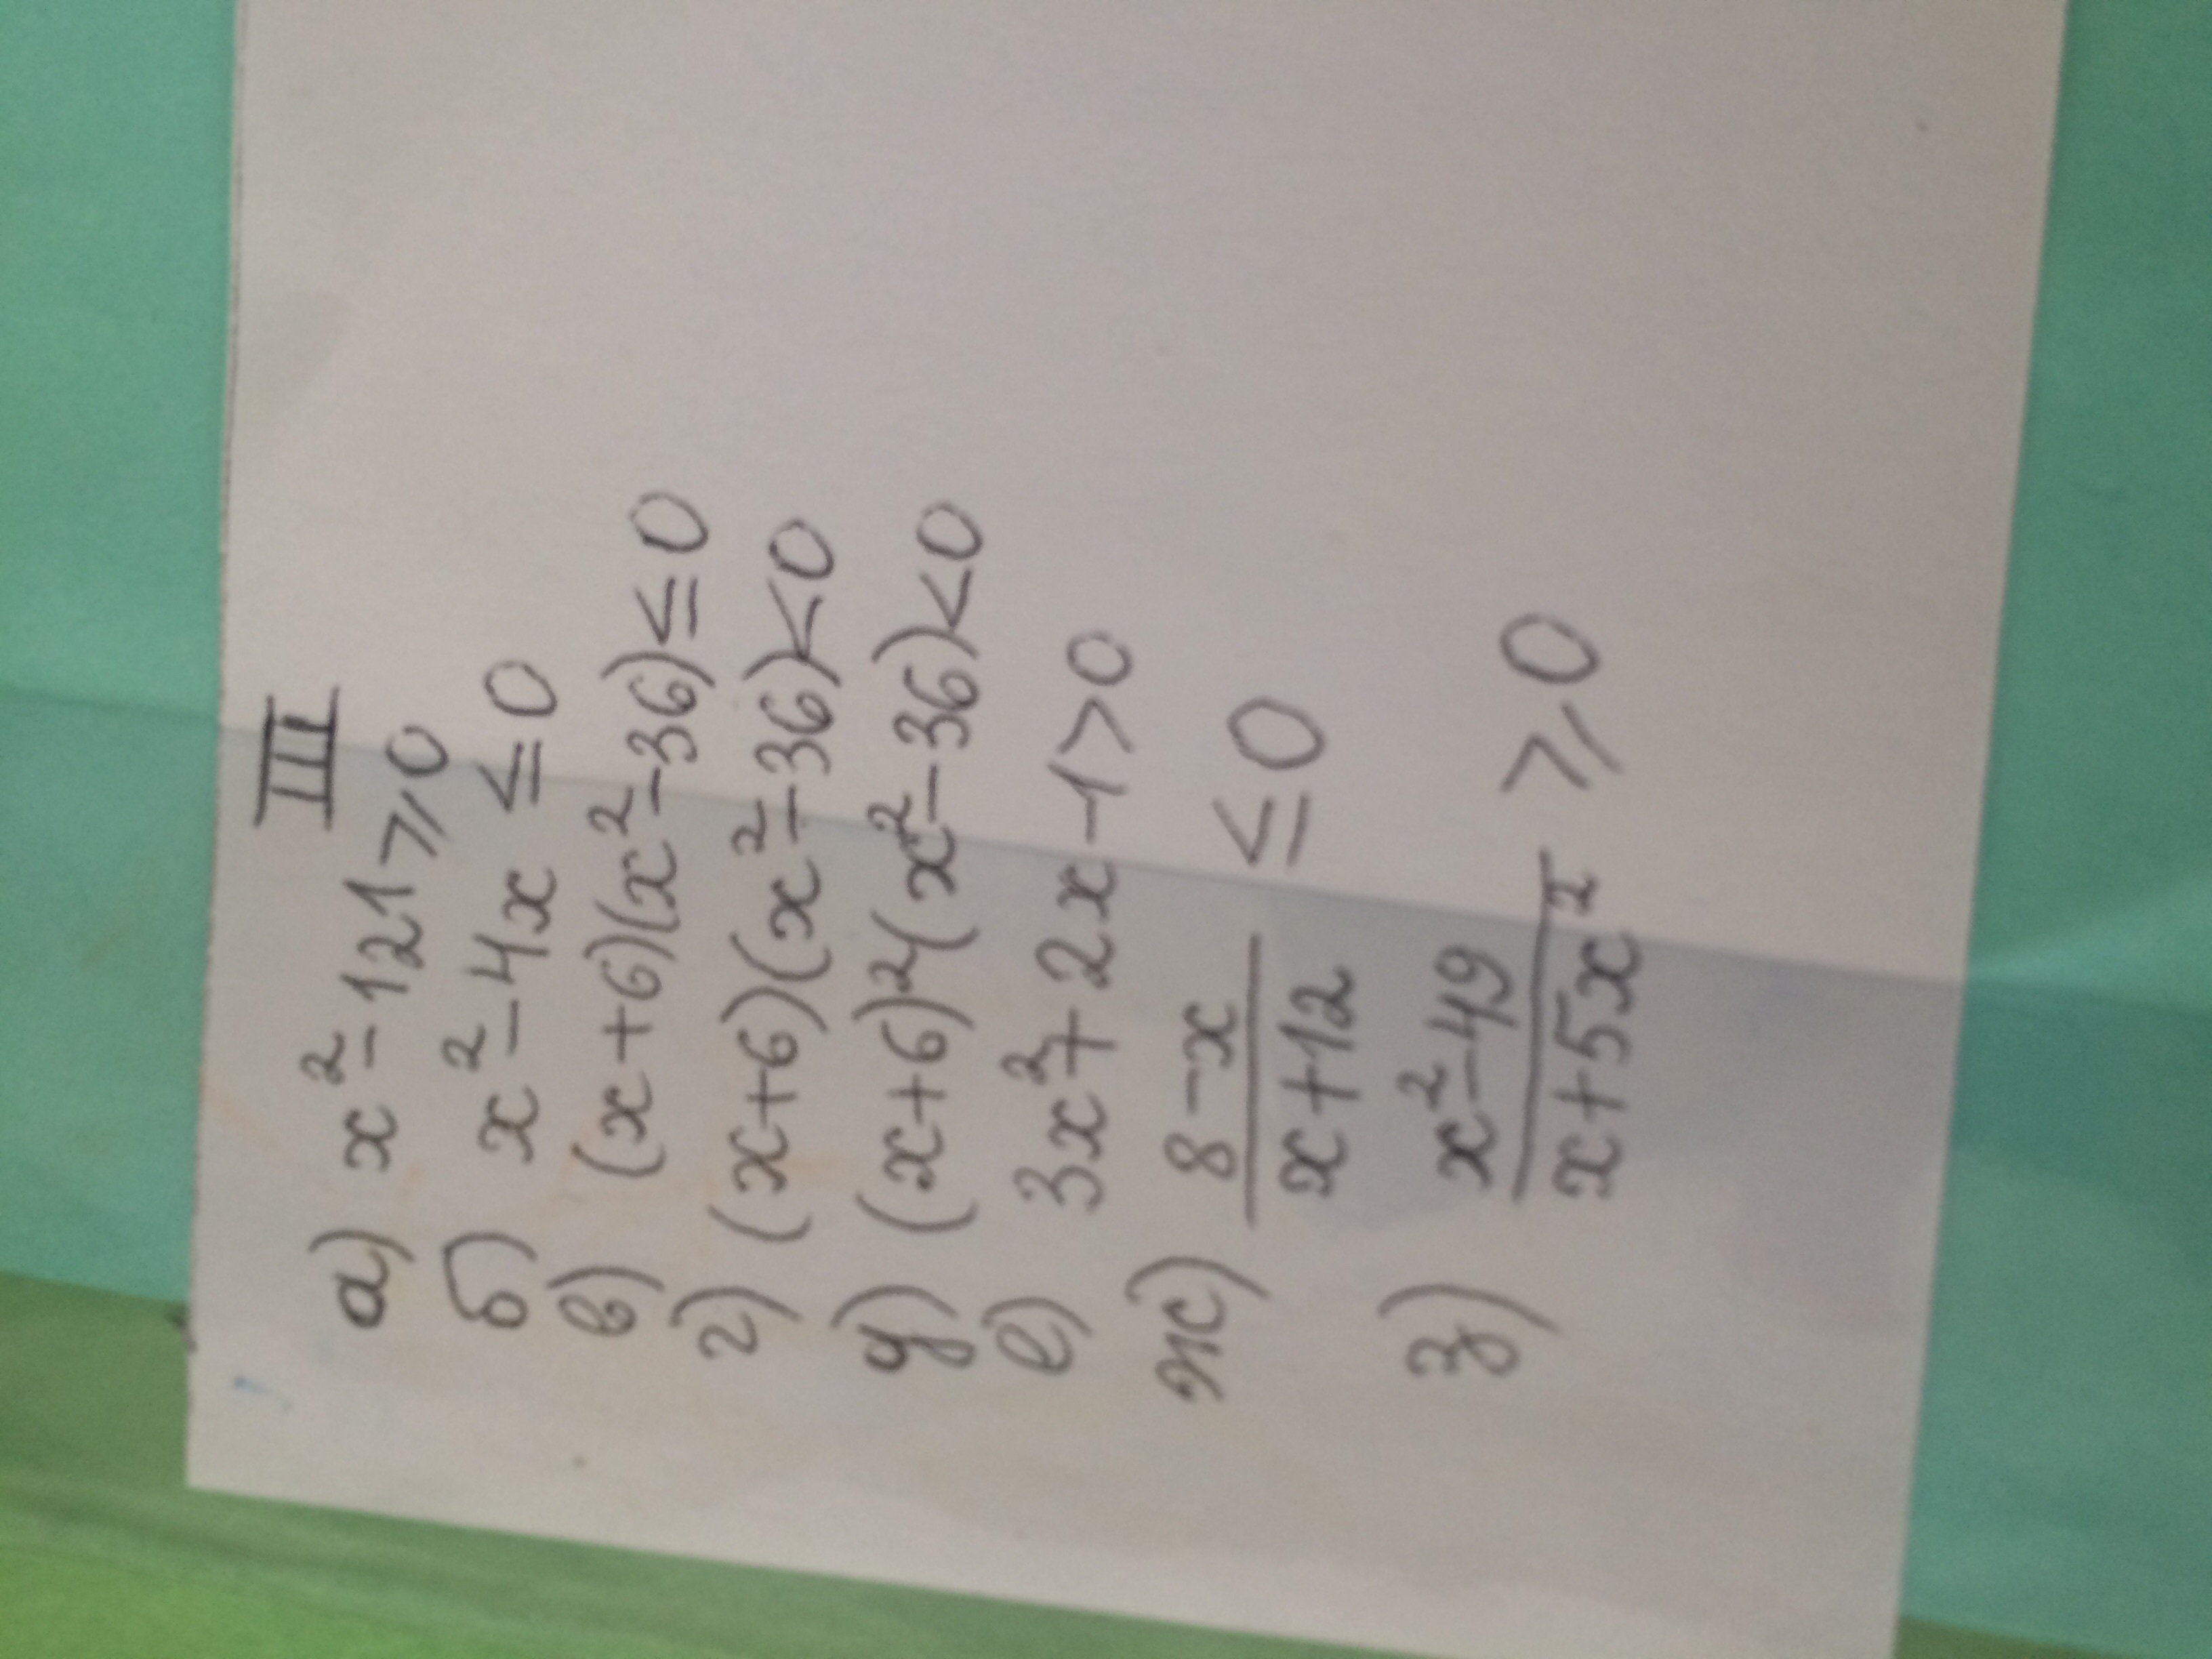 III
а) x²-121⩾0
б) x²-4x ≤0
в) (x+6)(x²-36)≤0
г) (x+6)(x²-36)<0
д) (x+6)²(x²-36)<0
е) 3x²+2x-1>0
ж) 8-x / x+12 ≤0
з) x²-49 / x+5x² ⩾0